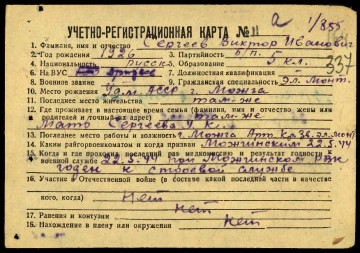 а 1/855
УЧЕТНО-РЕГИСТРАЦИОННАЯ КАРТА №11
337
1. Фамилия, имя и отчество Сергеев Виктор Иванович
2. Год рождения 1926 3. Партийность б/п
4. Национальность русск 5. Образование 5 кл.
6. На ВУС 7. Должностная квалификация
8. Военное звание 9. Гражданская специальность Эл. Монт.
10. Место рождения Удм. АССР г. Можга
11. Последнее место жительства там-же
12. Где проживает в настоящее время семья (фамилия, имя и отчество жены или
родителей и точный адрес) там-же
Мать Сергеева У. К.
13. Последнее место работы и должность г. Можга Арт. Кл. 38. эл. монт
14. Каким райгорвоенкоматом и когда призван Можгинским 22.5.44
15. Когда и где проходил последний раз медкомиссию и результат годности к
военной службе 22.5.44 при Можгинском РВК
годен к строевой службе
16. Участие в Отечественной войне (в составе какой последней части в качестве
кого, когда) Нет
17. Ранения и контузии нет
18. Нахождение в плену или окружении нет